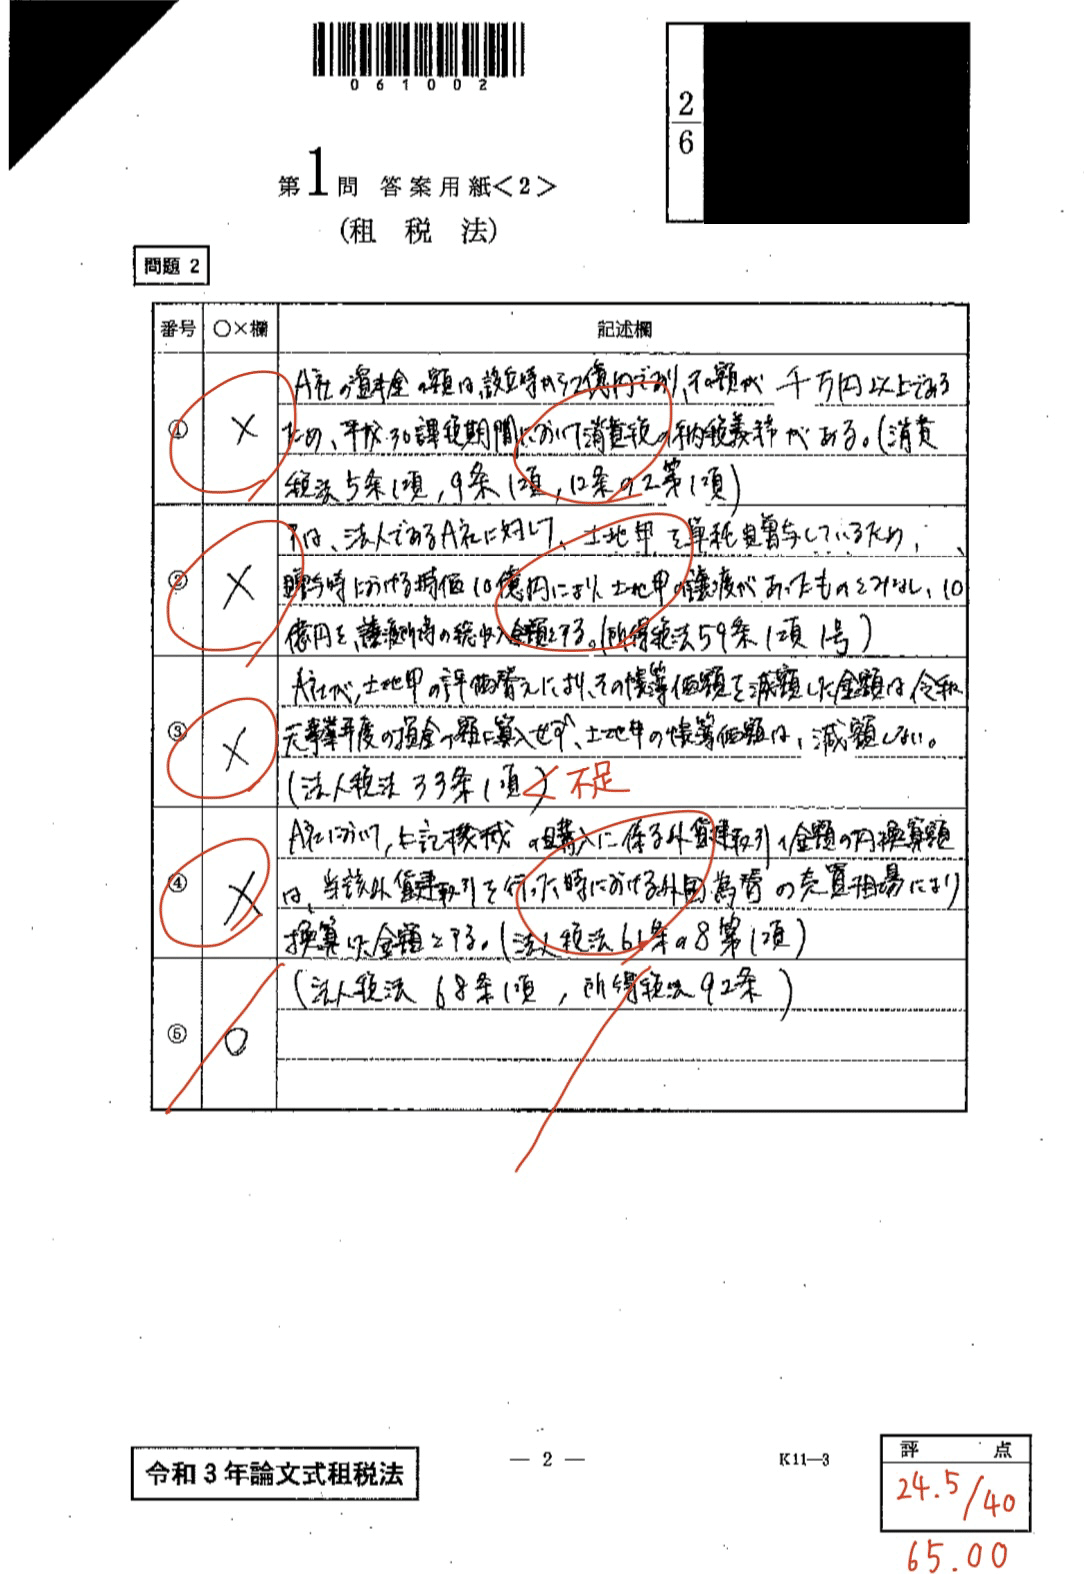 061002
2
6
第1問 答案用紙<2>
(租税法)
問題 2
番号 ○×欄 記述欄
① × A社の資本金の額は、設立時から2億円であり、その額が 千万円以上である
ため、平成30課税期間において消費税の納税義務がある。(消費
税法5条1項, 9条1項, 12条の2第1項)
② × は、法人であるA社に対して、土地甲を贈与しているため、
贈与時における時価10億円により、土地甲の譲渡があったものとみなし、10
億円を、譲渡所得の総収入金額とする。(所得税法59条1項1号)
③ × A社が、土地甲の評価替えにより、その帳簿価額を減額した金額は、令和
元事業年度の損金の額に算入せず、土地甲の帳簿価額は、減額しない。
(法人税法33条1項) < 不足
④ × A社において、上記機械の購入に係る外貨建取引の金額の円換算額
は、当該外貨建取引を行った時における外国為替の売買相場により
換算した金額とする。(法人税法61条の8第1項)
⑤ ○ (法人税法 68条1項, 所得税法92条)
令和3年論文式租税法
— 2 —
K11—3
評 点
24.5/40
65.00